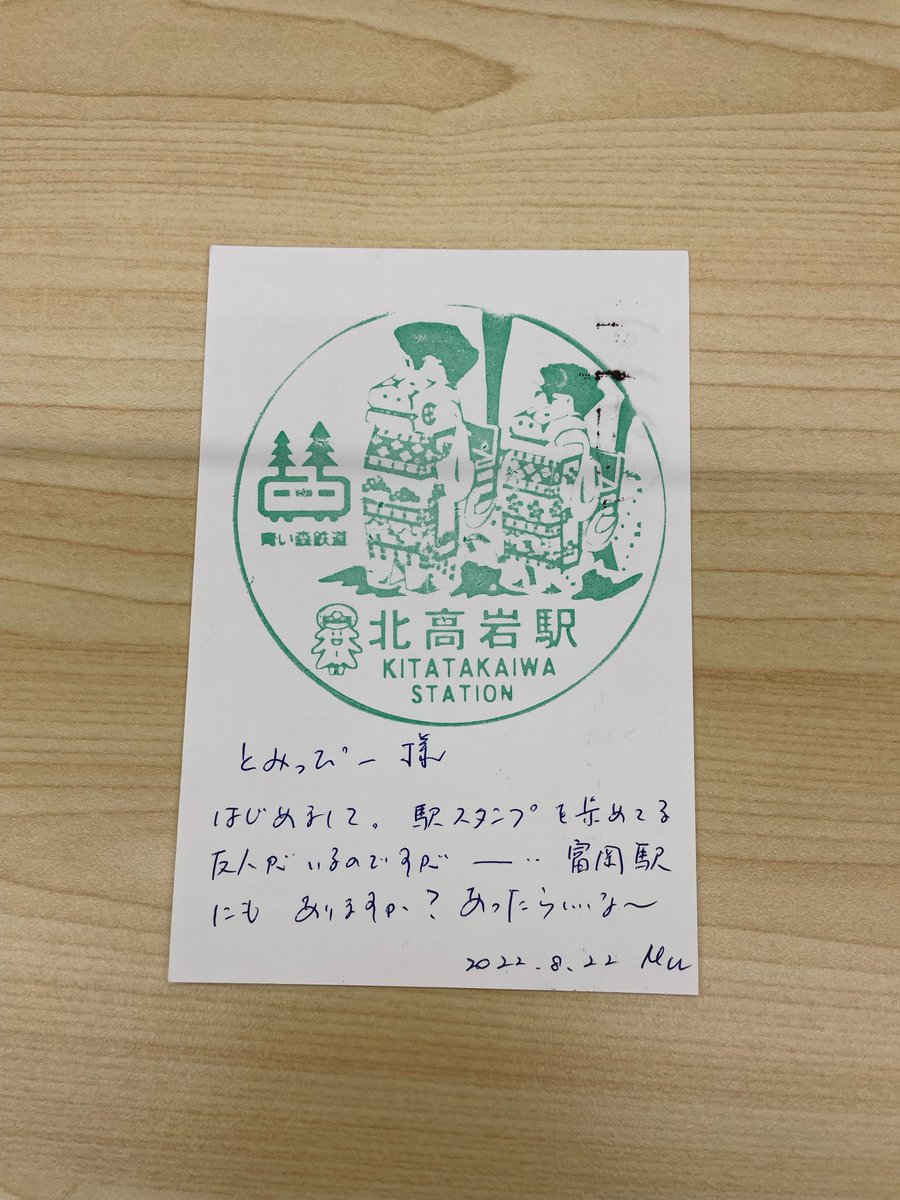 青い森鉄道
北高岩駅
KITATAKAIWA
STATION
とみっぴー様
はじめまして。駅スタンプを集めてる
友人がいるのですが ー‥ 富岡駅
にも ありますか？あったらいいな〜
2022.8.22 Mu